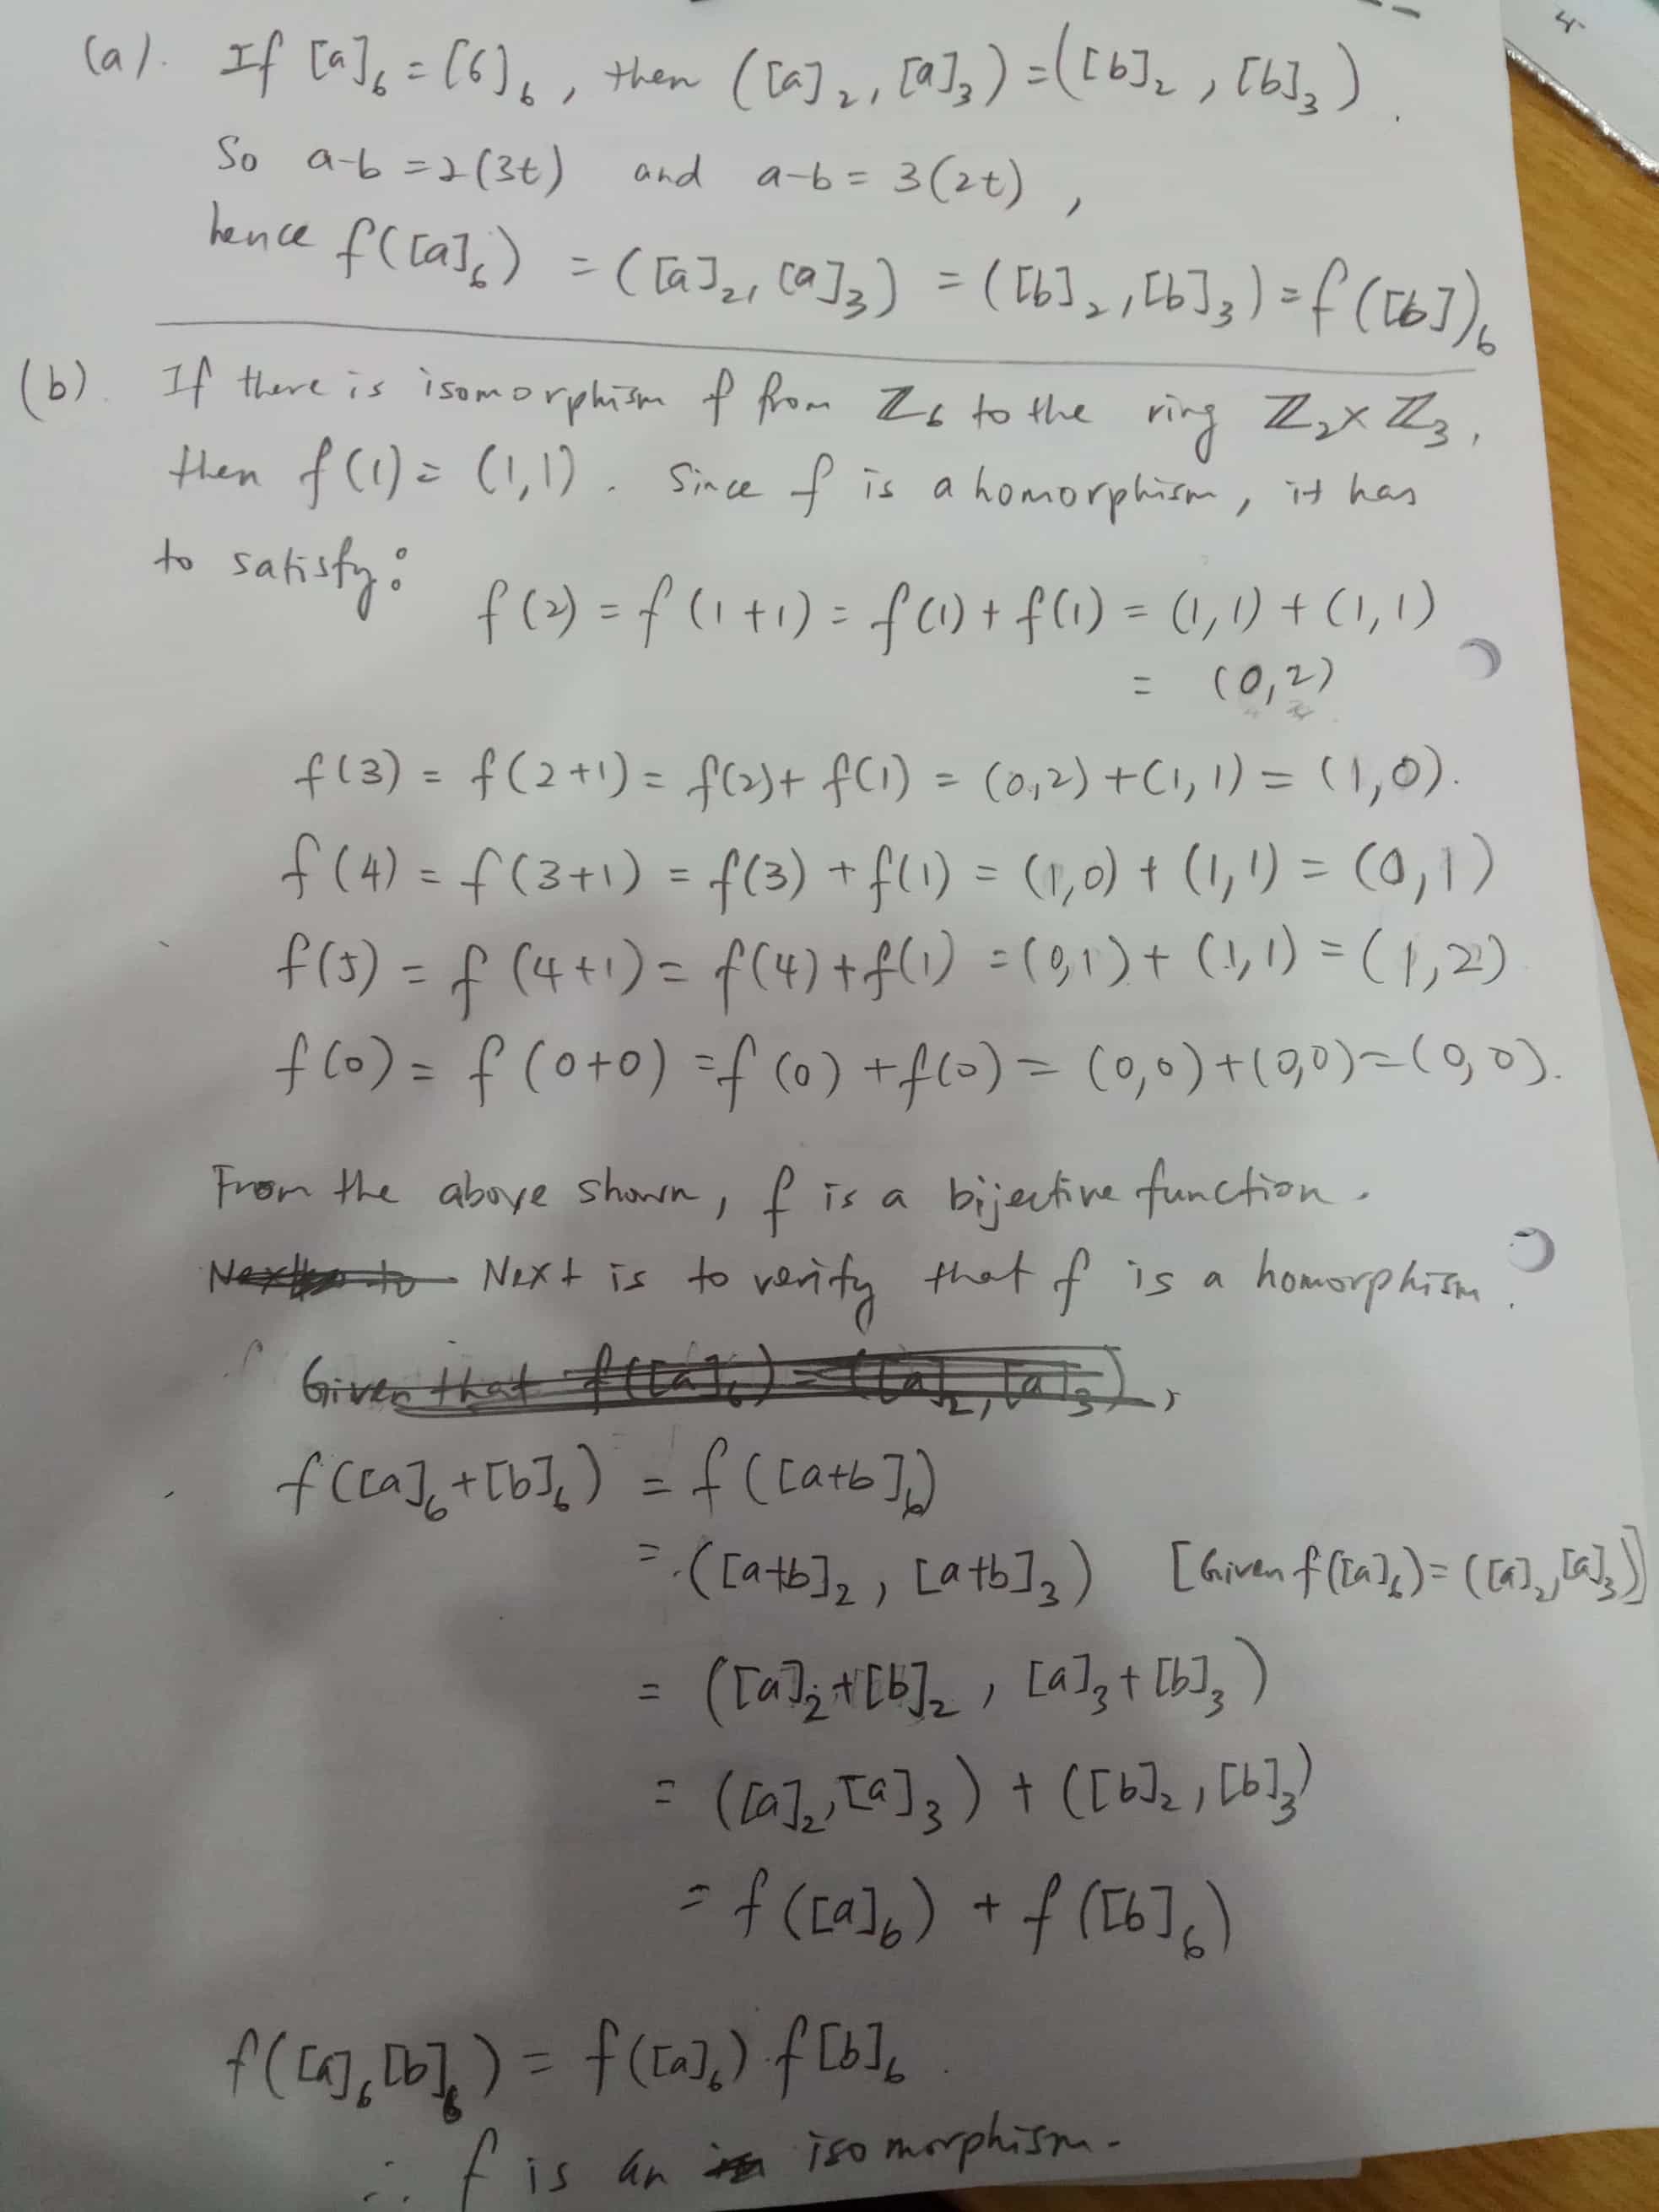 (a). If [a]₆ = [6]₆, then ([a]₂, [a]₃) = ([b]₂, [b]₃).
So a-b = 2(3t) and a-b = 3(2t),
hence f([a]₆) = ([a]₂, [a]₃) = ([b]₂, [b]₃) = f([b])₆
(b). If there is isomorphism f from ℤ₆ to the ring ℤ₂×ℤ₃,
then f(1) = (1,1). Since f is a homorphism, it has
to satisfy:
f(2) = f(1+1) = f(1) + f(1) = (1,1) + (1,1)
= (0,2)
f(3) = f(2+1) = f(2)+ f(1) = (0,2) + (1,1) = (1,0).
f(4) = f(3+1) = f(3) + f(1) = (1,0) + (1,1) = (0,1)
f(5) = f(4+1) = f(4) + f(1) = (0,1) + (1,1) = (1,2)
f(0) = f(0+0) = f(0) + f(0) = (0,0)+(0,0) = (0,0).
From the above shown, f is a bijective function.
Next is to verify that f is a homorphism.
Given that f([a]₆) = ([a]₂, [a]₃),
f([a]₆+[b]₆) = f([a+b]₆)
= ([a+b]₂, [a+b]₃) [Given f([a]₆) = ([a]₂,[a]₃)]
= ([a]₂+[b]₂, [a]₃+[b]₃)
= ([a]₂,[a]₃) + ([b]₂,[b]₃)
= f([a]₆) + f([b]₆)
f([a]₆[b]₆) = f([a]₆) f[b]₆.
∴ f is an isomorphism.
4.